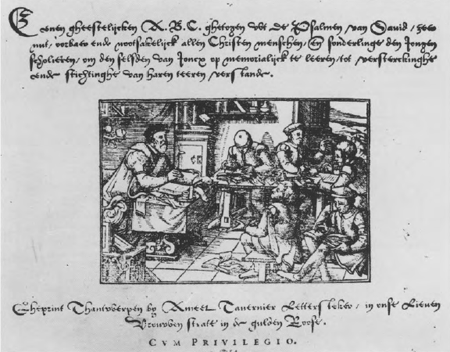 Eenen gheestelijcken A.B.C. ghetogen wt de Psalmen van David / seer
nut / oorbaer ende nootsakelijck allen Christen menschen / en sonderlinge den jongen
scholieren / om den selfden van jonex op memorialijck te leeren / tot versterckinghe
ende stichtinghe van haren teeren verstande.
Gheprint Thantwerpen by Ameet Tavernier Lettersteker / in onse Lieven
Vrouwen straete in de gulden Roose.
CVM PRIVILEGIO.